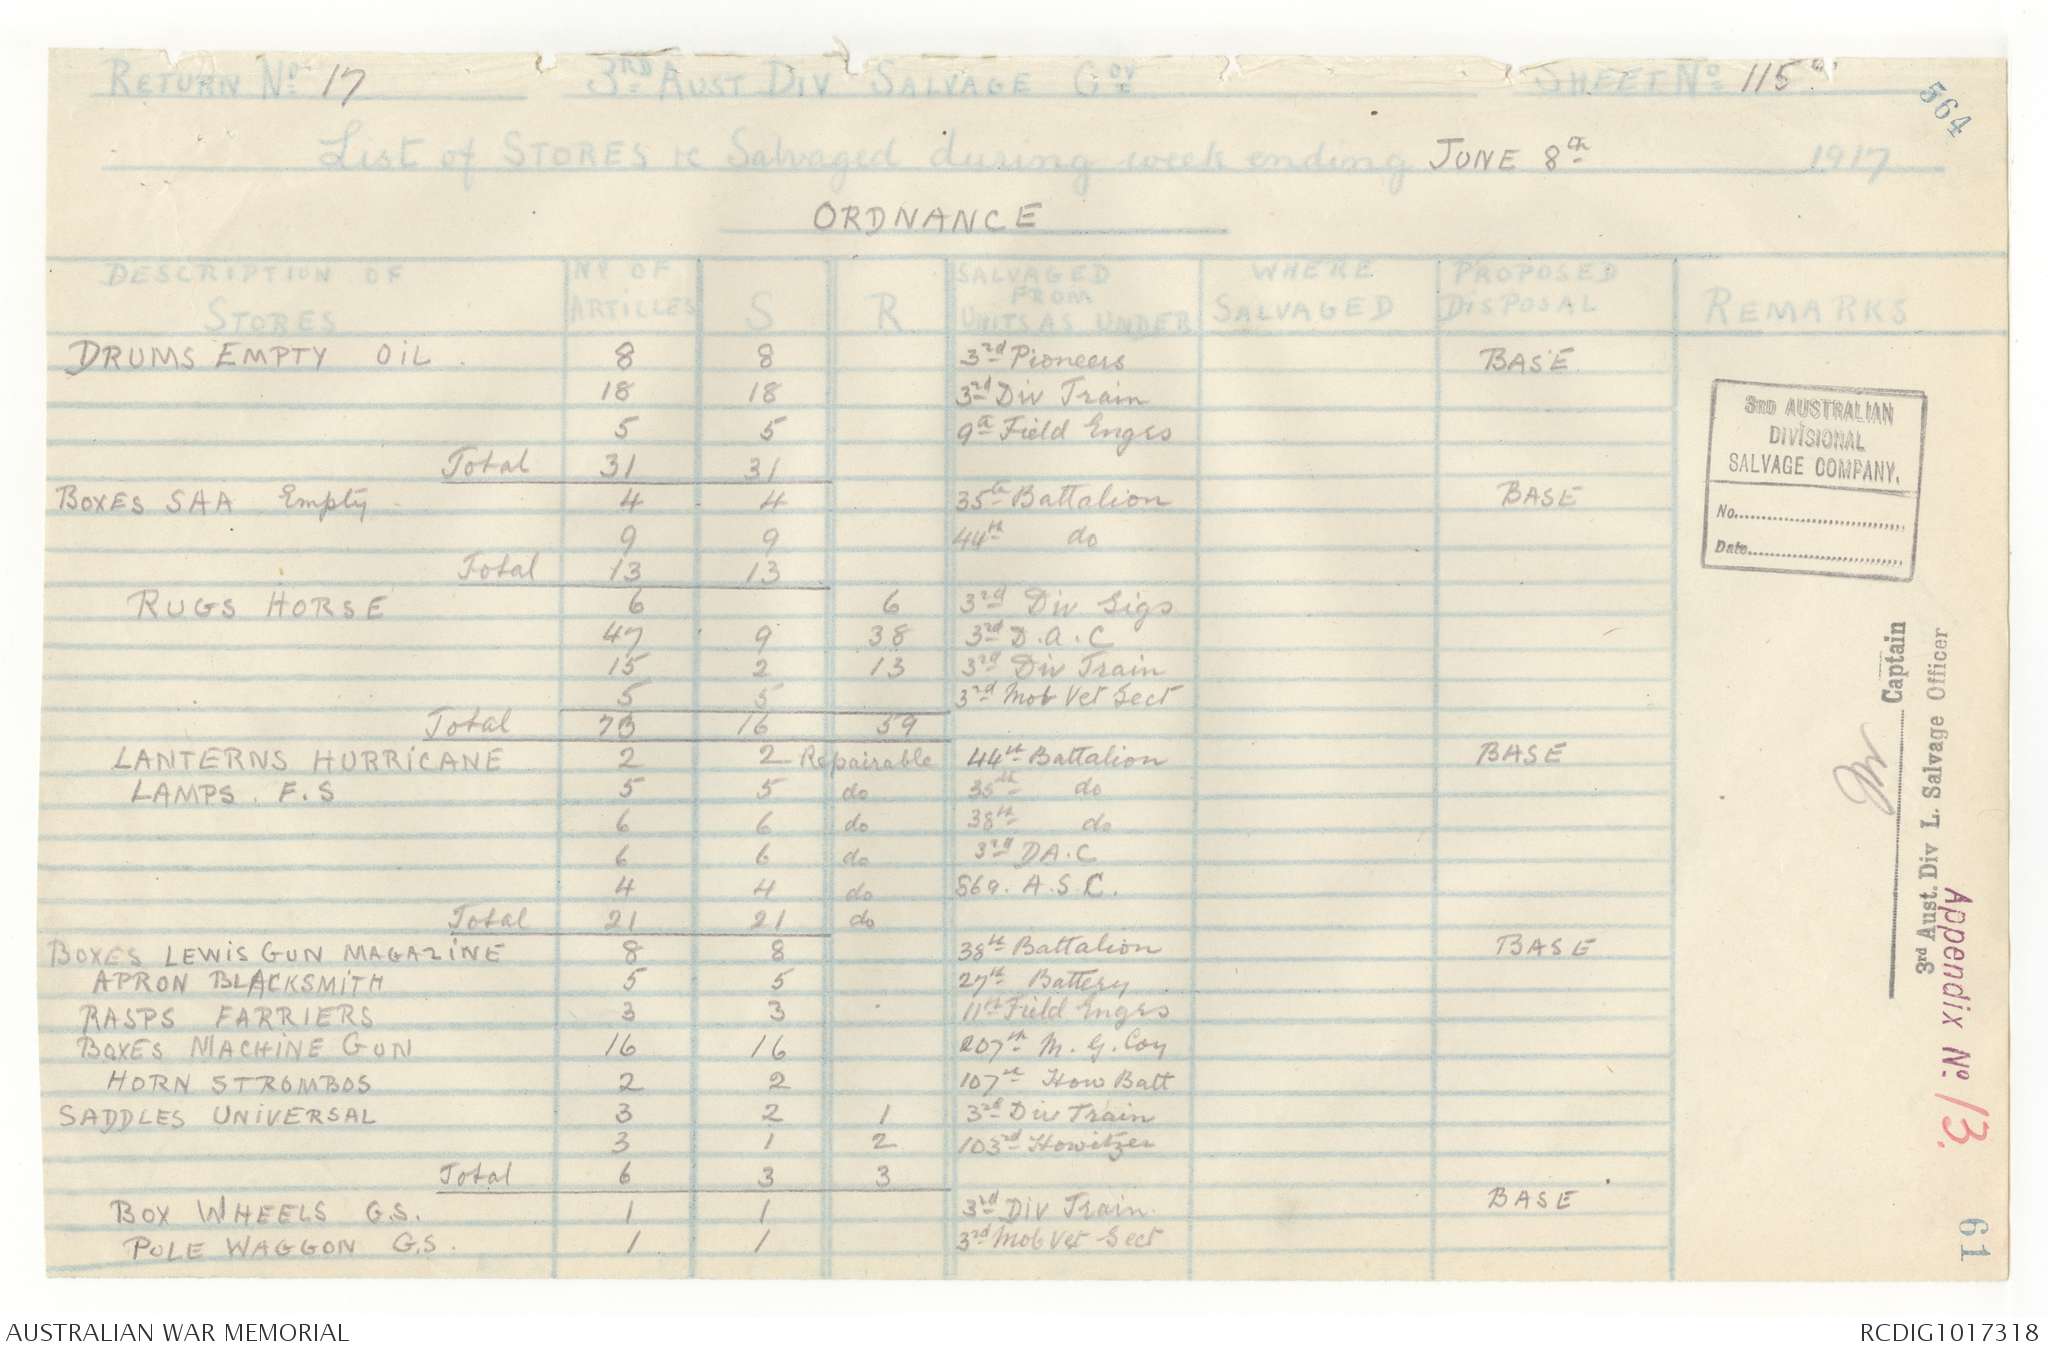 RETURN No 17 3RD AUST DIV SALVAGE COY SHEET No 115
564
List of STORES &c Salvaged during week ending JUNE 8th 1917
ORDNANCE
DESCRIPTION OF STORES No OF ARTICLES S R SALVAGED FROM UNITS AS UNDER WHERE SALVAGED PROPOSED DISPOSAL REMARKS
DRUMS EMPTY OIL. 8 8 3rd Pioneers BASE
18 18 3rd Div Train
5 5 9th Field Engrs
Total 31 31
BOXES SAA Empty 4 4 35th Battalion BASE
9 9 44th do
Total 13 13
RUGS HORSE 6 6 3rd Div Sigs
47 9 38 3rd D.A.C
15 2 13 3rd Div Train
5 5 3rd Mob Vet Sect
Total 73 16 59
LANTERNS HURRICANE 2 2 Repairable 44th Battalion BASE
LAMPS. F.S 5 5 do 35th do
6 6 do 38th do
6 6 do 3rd DA.C
4 4 do 569. A.S.C.
Total 21 21 do
BOXES LEWIS GUN MAGAZINE 8 8 38th Battalion BASE
APRON BLACKSMITH 5 5 27th Battery
RASPS FARRIERS 3 3 11th Field Engrs
BOXES MACHINE GUN 16 16 207th M.G. Coy
HORN STROMBOS 2 2 107th How Batt
SADDLES UNIVERSAL 3 2 1 3rd Div Train
3 1 2 103rd Howitzer
Total 6 3 3
BOX WHEELS G.S. 1 1 3rd Div Train. BASE
POLE WAGGON G.S. 1 1 3rd Mob Vet Sect
3RD AUSTRALIAN
DIVISIONAL
SALVAGE COMPANY.
No.
Date
Captain
3rd Aust. Div L. Salvage Officer
Appendix No. 13.
61
AUSTRALIAN WAR MEMORIAL RCDIG1017318